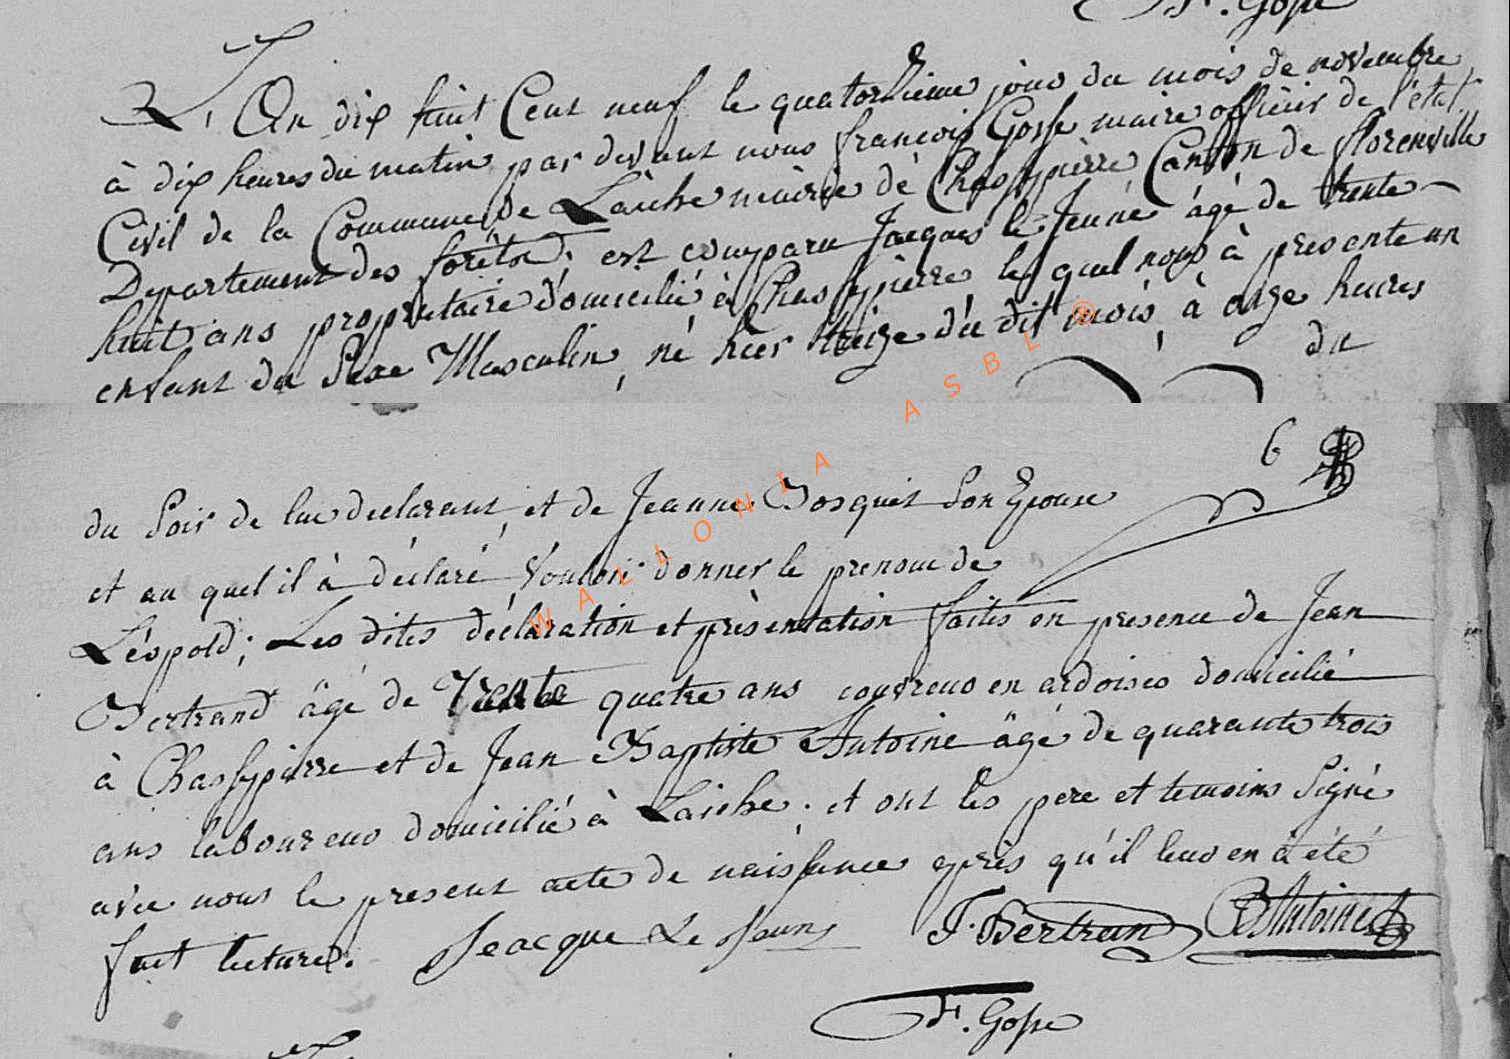 F. Gosse
L'An dix huit Cent neuf le quatorzieme jour du mois de novembre
à dix heures du matin par devant nous françois Gosse maire officier de l'état
Civil de la Commune de Laiche mairie de Chassepierre Canton de florenville
Departement des forêts. est comparu Jacques le Jeune âgé de trente
huit ans propriétaire domicilié à Chassepierre le quel nous à presenté un
enfant du Sexe Masculin, né hier treize du dit mois, à onze heures
du
6
du Soir de lui declarant, et de Jeanne Bosquet Son Epouse
et au quel il à déclaré Vouloir donner le prenom de
Léopold; Les dites déclaration et présentation faites en presence de Jean
Bertrand âgé de Trente quatre ans couvreur en ardoises domicilié
à Chassepierre et de Jean Baptiste Antoine âgé de quarante trois
ans laboureur domicilié à Laiche. et ont les pere et temoins Signé
avec nous le present acte de naissance après qu'il leur en à été
fait lecture. Jeacque Le Jeune J. Bertrand JB Antoine
F. Gosse
WALLONIA ASBL ®